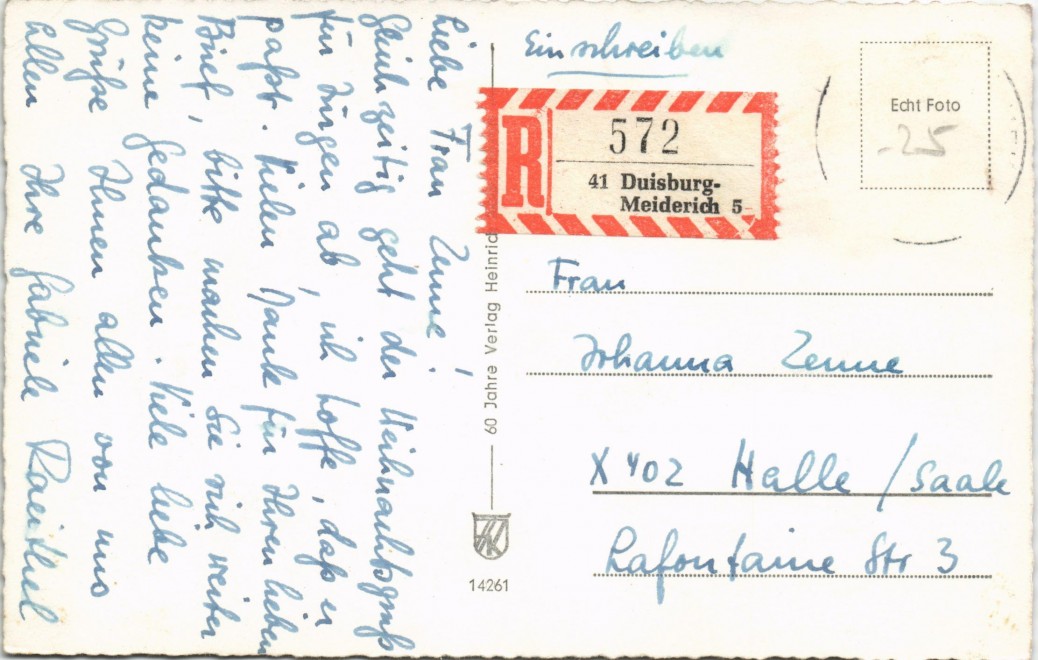 Liebe Frau Zenne!
Gleichzeitig geht der Weihnachtsgruß
für Jürgen ab, ich hoffe, daß er
paßt. Vielen Dank für Ihren lieben
Brief, bitte machen Sie sich weiter
keine Gedanken. Viele liebe
Grüße Ihnen allen von uns
allen Ihre Gabriele
Einschreiben
R
572
41 Duisburg-
Meiderich 5
Echt Foto
-25
60 Jahre Verlag Heinrich
HK
14261
Frau
Johanna Zenne
X 402 Halle / Saale
Lafontaine Str 3